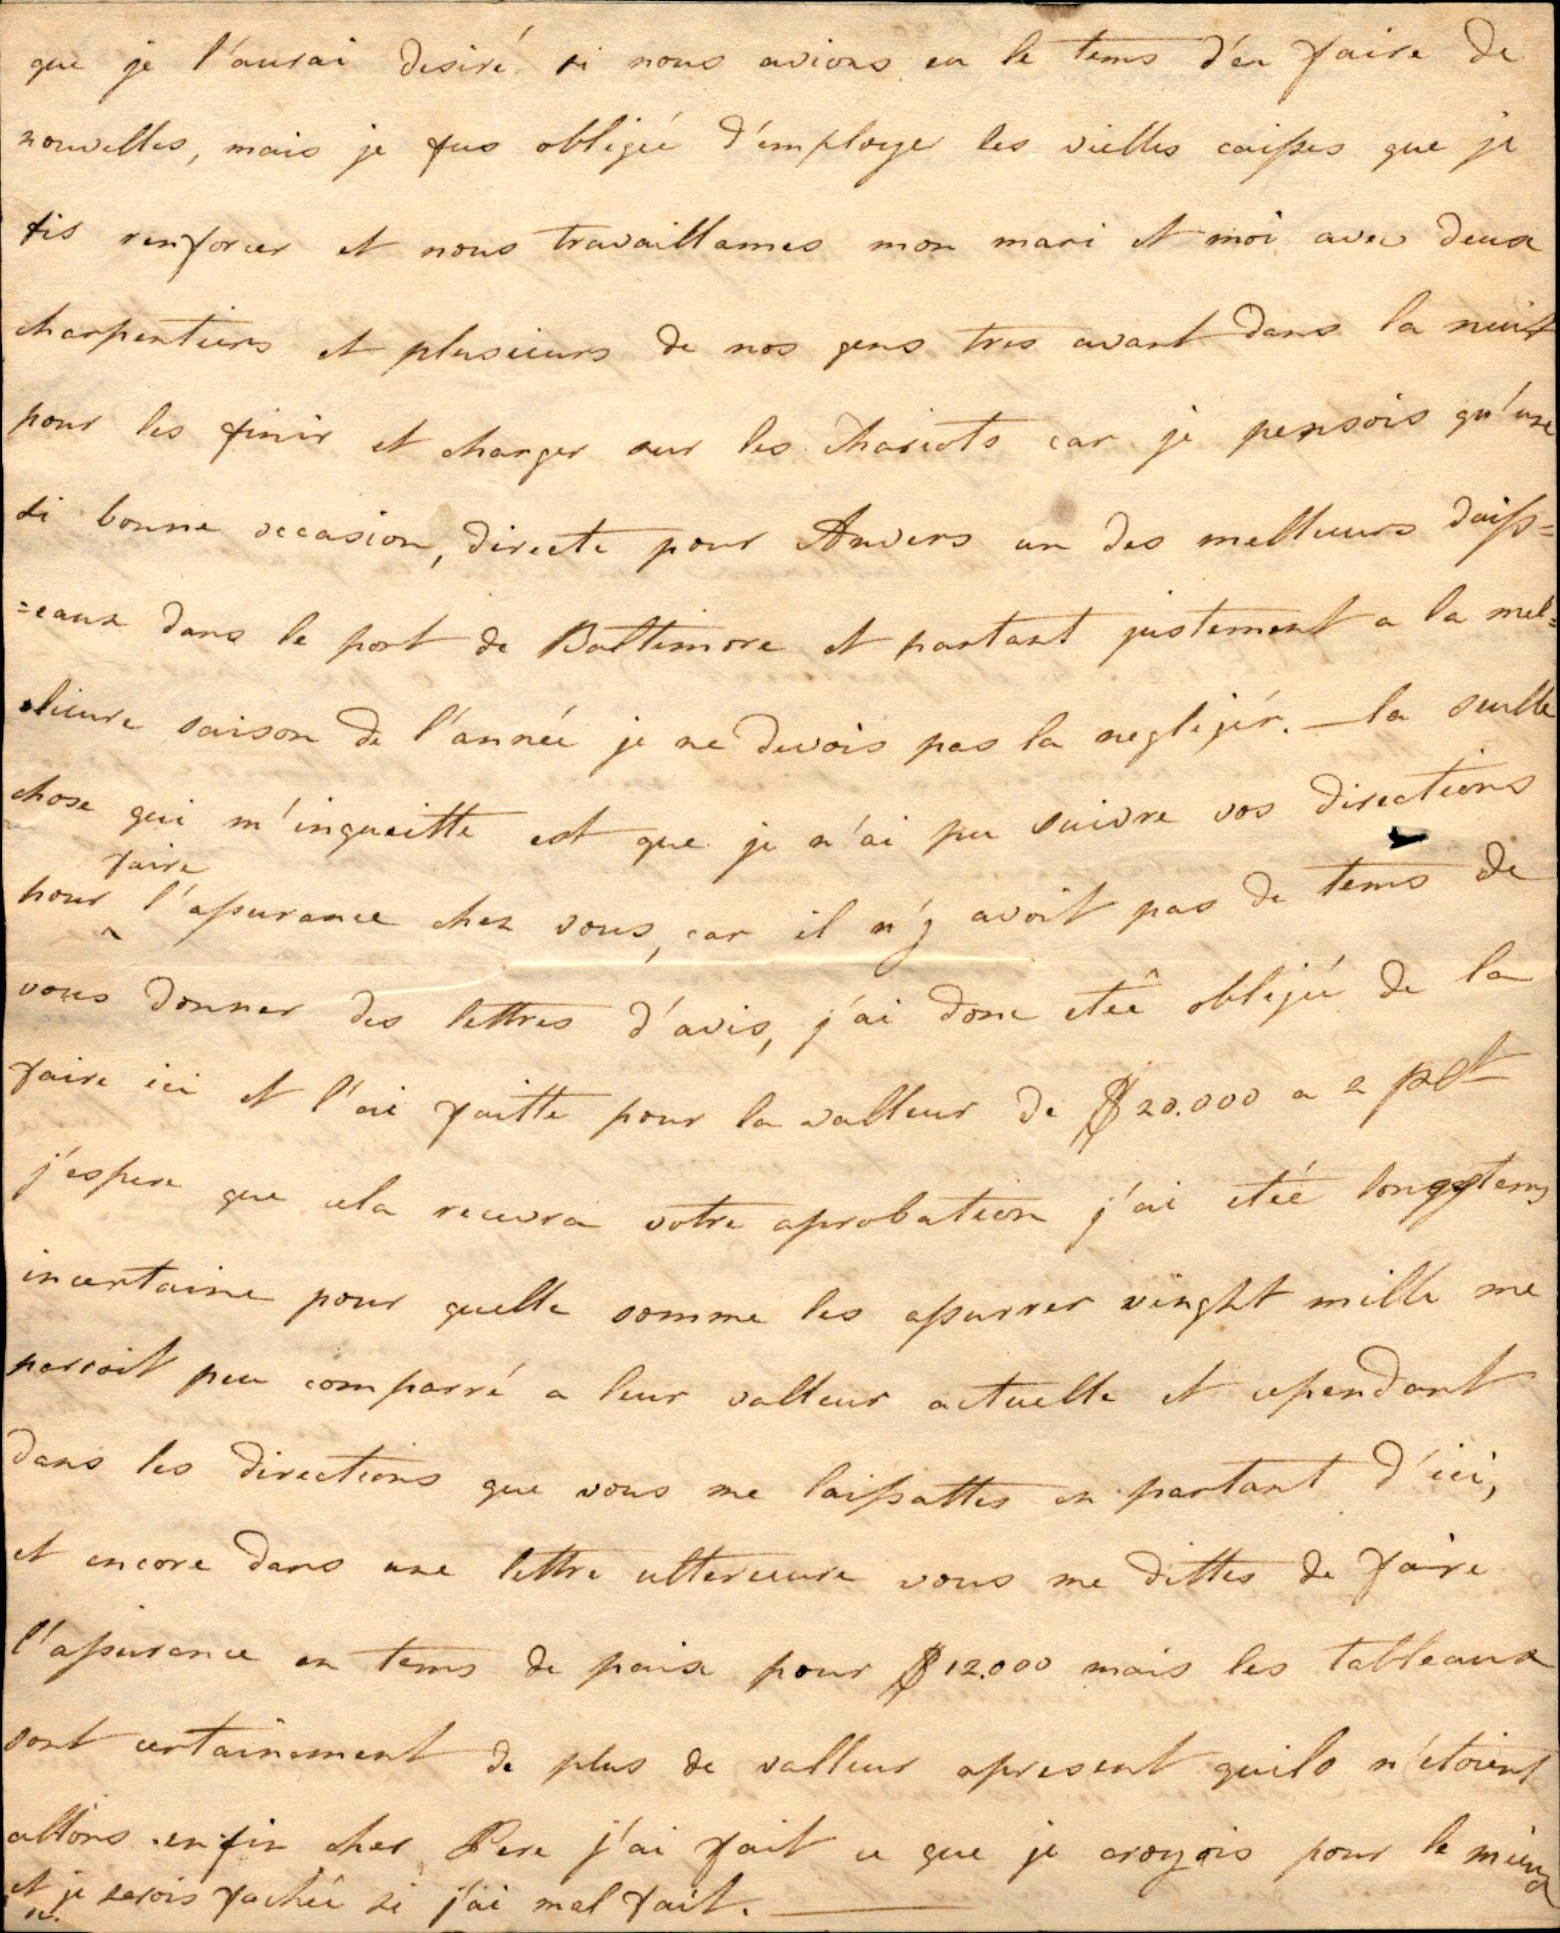 que je l'aurai desiré si nous avions eu le tems d'en faire de
nouvelles, mais je fus obligée d'employer les vielles caisses que je
fis renforcer et nous travaillames mon mari et moi avec deux
charpentiers et plusieurs de nos gens tres avant dans la nuit
pour les finir et charger sur les chariots car je pensois qu'une
si bonne occasion, directe pour Anvers un des mellieurs vaiss=
=eaux dans le port de Baltimore et partant justement a la mel=
lieure saison de l'année je ne devois pas la neglijér. — la seulle
chose qui m'inqueitte est que je n'ai pu suivre vos directions
faire
pour l'assurance chez vous, car il n'y avoit pas de tems de
vous donner des lettres d'avis, j'ai donc eteê oblijée de la
faire ici et l'ai faitte pour la valleur de $ 20.000 a 2 pct
j'espere que cela recevra votre aprobation j'ai eteé longtems
incertaine pour quelle somme les assurrer vinght mille me
parroit peu comparré a leur valleur actuelle et cependant
dans les directions que vous me laissattes en partant d'ici,
et encore dans une lettre ulterieure vous me dittes de faire
l'assurance en tems de paix pour $ 12.000 mais les tableaux
sont certainement de plus de valleur apresent quils n'étoient
allors enfin cher Pere j'ai fait ce que je croyois pour le mieux
et je serois fachée si j'ai mal fait. —